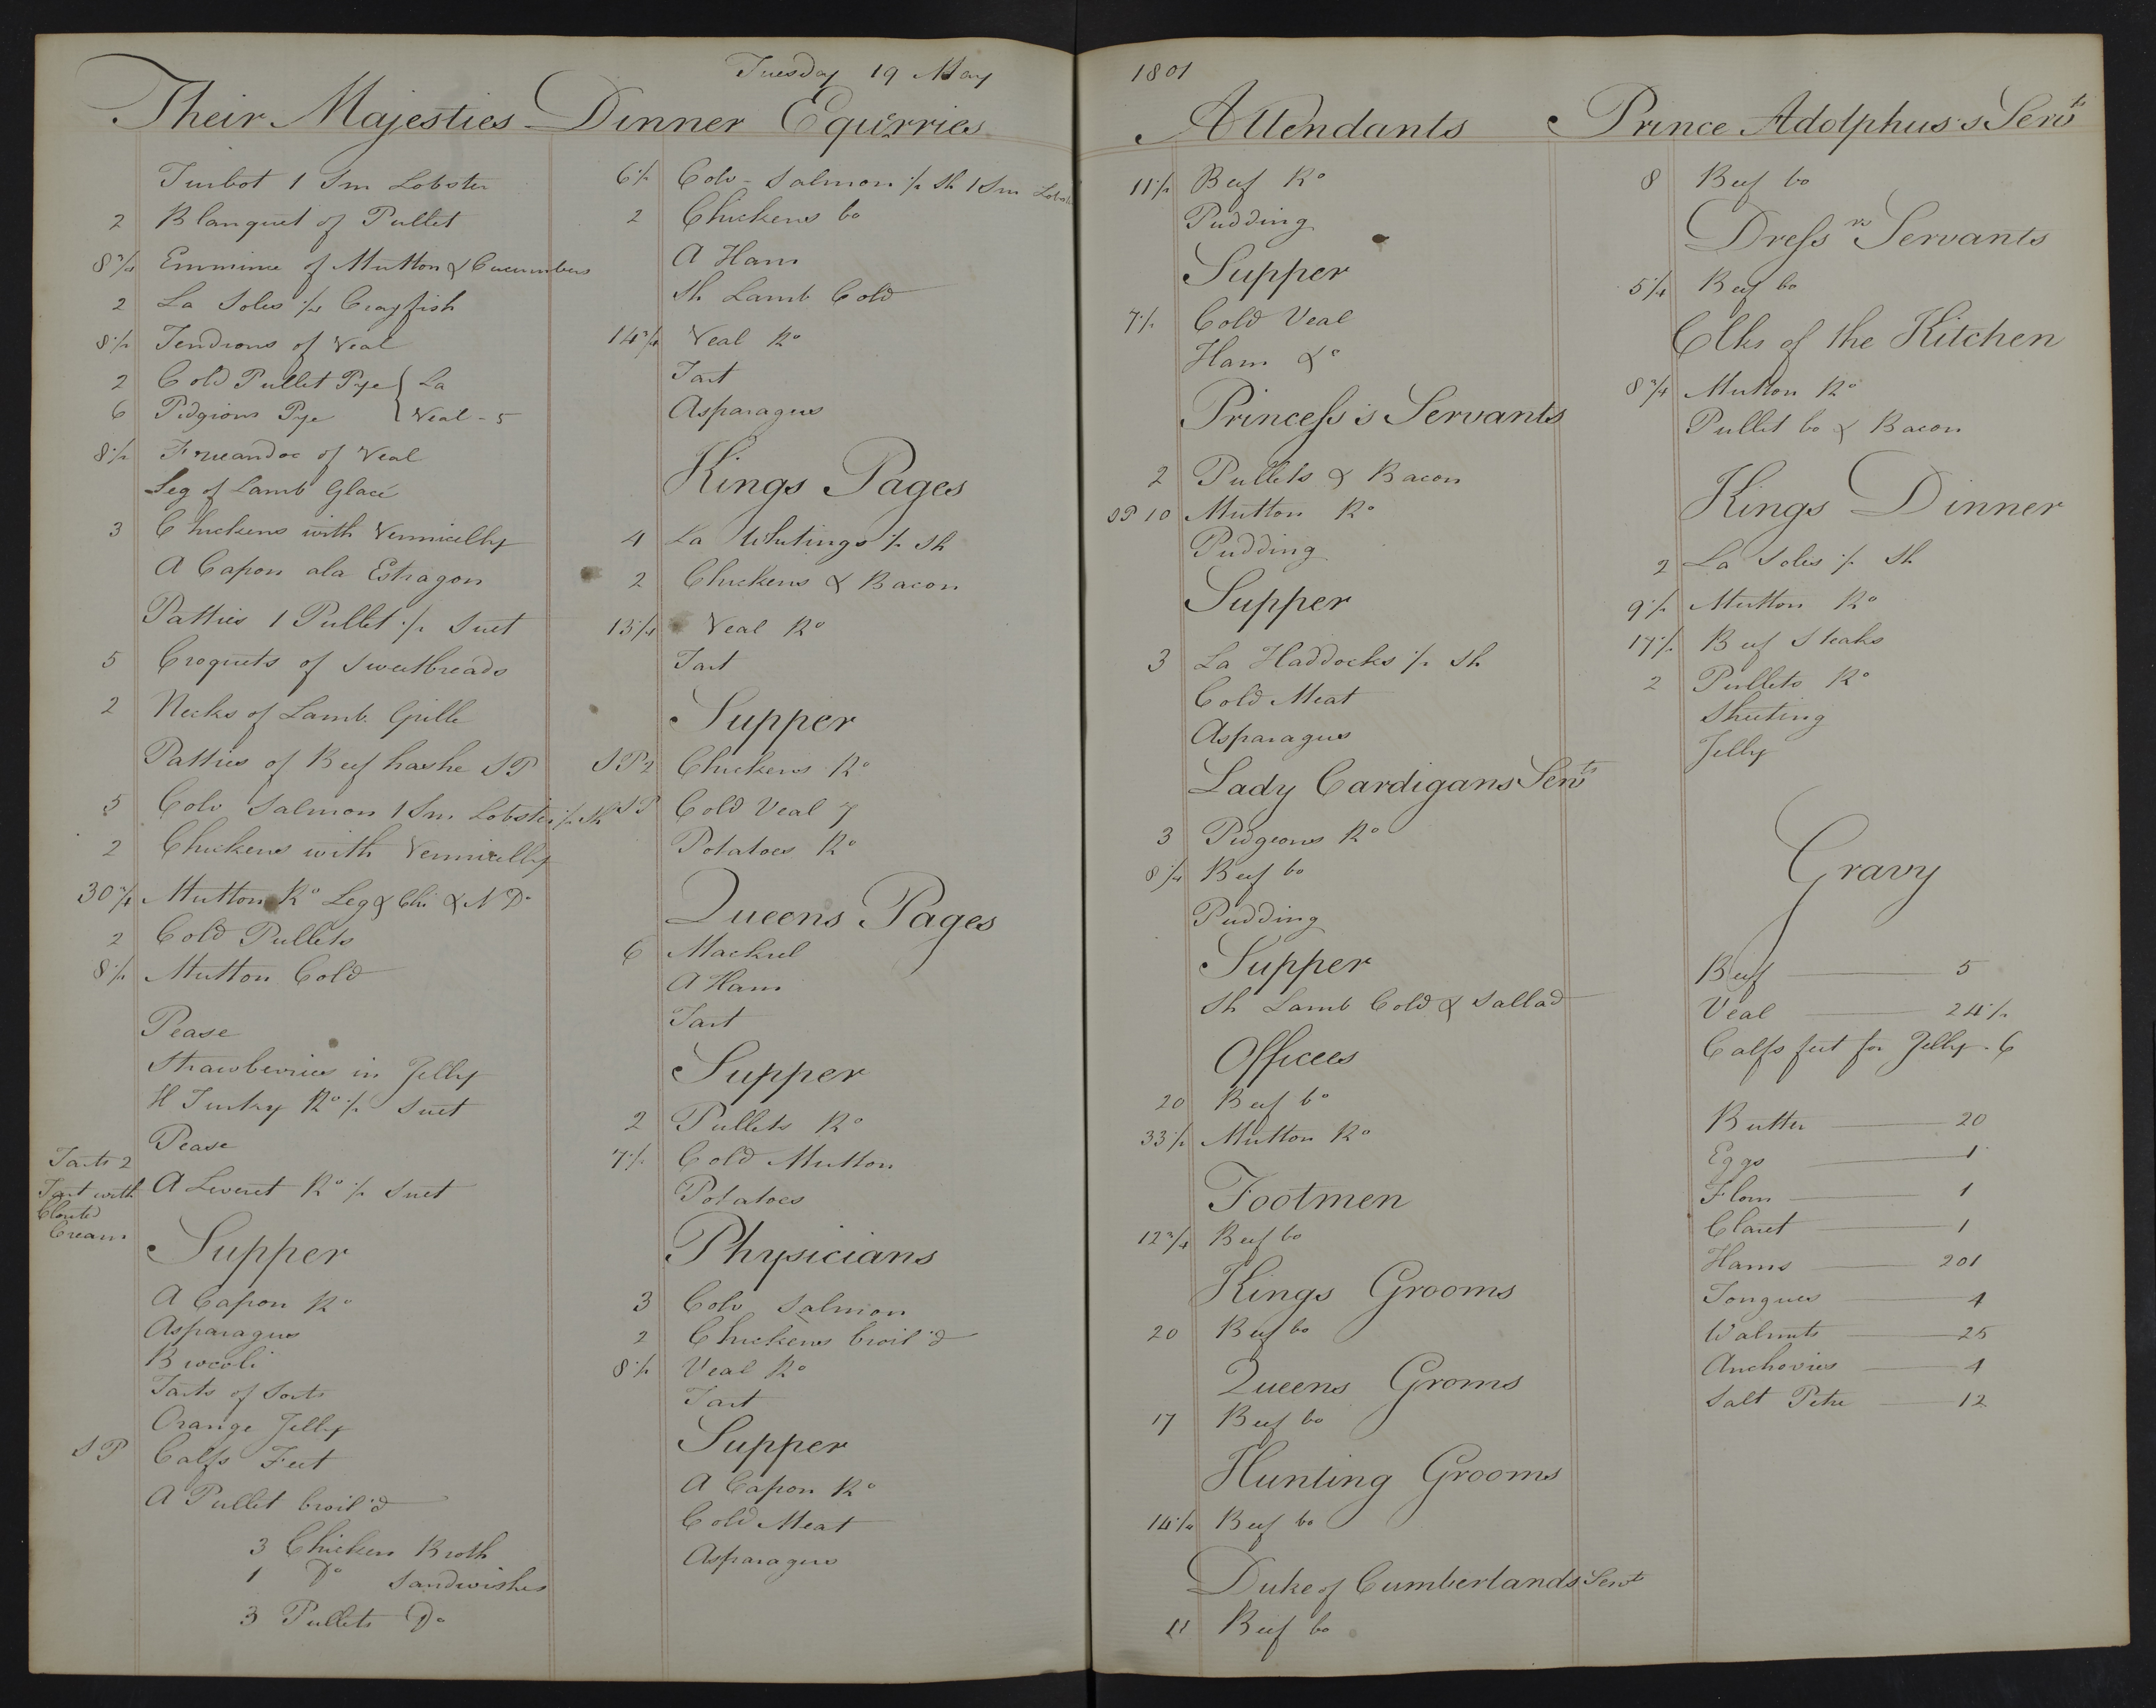 Tuesday 19 May
Their Majesties Dinner
Turbot 1 Sm Lobster
2 Blanquet of Pullet
8 3/4 Emmince of Mutton & Cucumbers
2 La Soles 1/4 Crayfish
8 1/2 Tendrons of Veal
2 Cold Pullet Pye { La
6 Pidgions Pye { Veal - 5
8 1/2 of Veal
Leg of Lamb Glacé
3 Chickens with Vermicelly
A Capon ala Estragon
Patties 1 Pullet 1/2 Suet
5 Croquets of Sweetbreads
2 Necks of Lamb Grille
Patties of Beef hashe SP
5 Colv Salmon 1 Sm Lobster 1/2 Sh
2 Chickens with Vermicelly
30 3/4 Mutton Ro Leg & Chi & N Do
2 Cold Pullets
8 1/2 Mutton Cold
Pease
Strawberries in Jelly
H Turky Ro 1/2 Suet
Pease
Tarts 2
Tart with
Clouted
Cream
A Leveret Ro 1/2 Suet
Supper
A Capon Ro
Asparagus
Brocoli
Tarts of Sorts
Orange Jelly
SP Calfs Feet
A Pullet broil'd
3 Chicken Broth
1 Do Sandwishes
3 Pullets Do
Equirries
6 1/2 Colv - Salmon 1/2 Sh 1 Sm
2 Chickens bo
A Ham
Sh Lamb Cold
14 3/4 Veal Ro
Tart
Asparagus
Kings Pages
4 La Whitings 1/2 Sh
2 Chickens & Bacon
13 1/4 Veal Ro
Tart
Supper
SP 2 Chickens Ro
SP Cold Veal 7
Potatoes Ro
Queens Pages
6 Mackrel
A Ham
Tart
Supper
2 Pullets Ro
7 1/2 Cold Mutton
Potatoes
Physicians
3 Colv Salmon
2 Chickens broil'd
8 1/2 Veal Ro
Tart
Supper
A Capon Ro
Cold Meat
Asparagus
1801
Attendants
11 1/2 Beef Ro
Pudding
Supper
7 1/2 Cold Veal
Ham &c
Princess's Servants
2 Pullets & Bacon
SP 10 Mutton Ro
Pudding
Supper
3 La Haddocks 1/2 Sh
Cold Meat
Asparagus
Lady Cardigans Servts
3 Pidgeons Ro
8 1/4 Beef bo
Pudding
Supper
Sh Lamb Cold & Sallad
Offices
20 Beef bo
33 1/2 Mutton Ro
Footmen
12 3/4 Beef bo
Kings Grooms
20 Beef bo
Queens Groms
17 Beef bo
Hunting Grooms
Beef bo
Duke of Cumberlands Servts
11 Beef bo
Prince Adolphus's Servts
8 Beef bo
Dressrs Servants
5 1/4 Beef bo
Clks of the Kitchen
8 3/4 Mutton Ro
Pullet bo & Bacon
Kings Dinner
2 La Soles 1/2 Sh
9 1/2 Mutton Ro
17 1/2 Beef Steaks
2 Pullets Ro
Jelly
Gravy
Beef 5
Veal 24 1/2
Calfs feet for Jelly - 6
Butter 20
Eggs 1
Flour 1
Claret 1
Hams 201
Tongues 4
Walnuts 25
Anchovies 4
Salt Petre 12